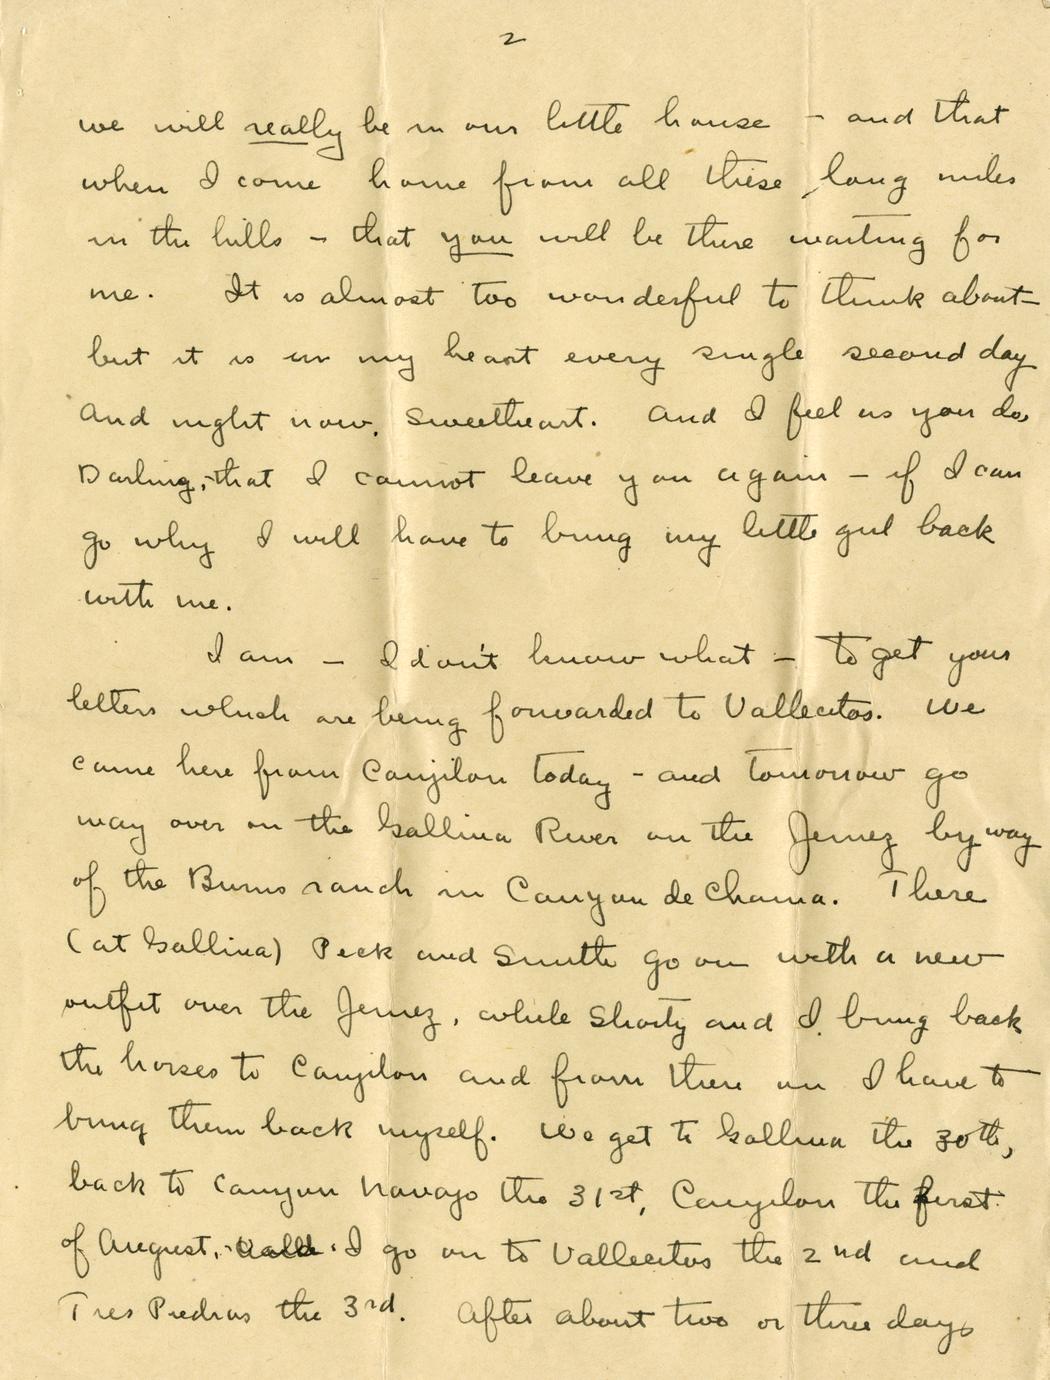 2
we will really be in our little house - and that
when I come home from all these long miles
in the hills - that you will be there waiting for
me. It is almost too wonderful to think about -
but it is in my heart every single second day
and night now, sweetheart. And I feel as you do,
Darling, - that I cannot leave you again - if I can
go why I will have to bring my little girl back
with me.
I am - I don't know what - to get your
letters which are being forwarded to Vallecitos. We
came here from Canjilon today - and tomorrow go
way over on the Gallina River on the Jemez by way
of the Burns ranch in Canyon de Chama. There
(at Gallina) Peck and Smith go on with a new
outfit over the Jemez, while Shorty and I bring back
the horses to Canjilon and from there on I have to
bring them back myself. We get to Gallina the 30th,
back to Canyon Navajo the 31st, Canjilon the first
of August, - I go on to Vallecitos the 2nd and
Tres Piedras the 3rd. After about two or three days